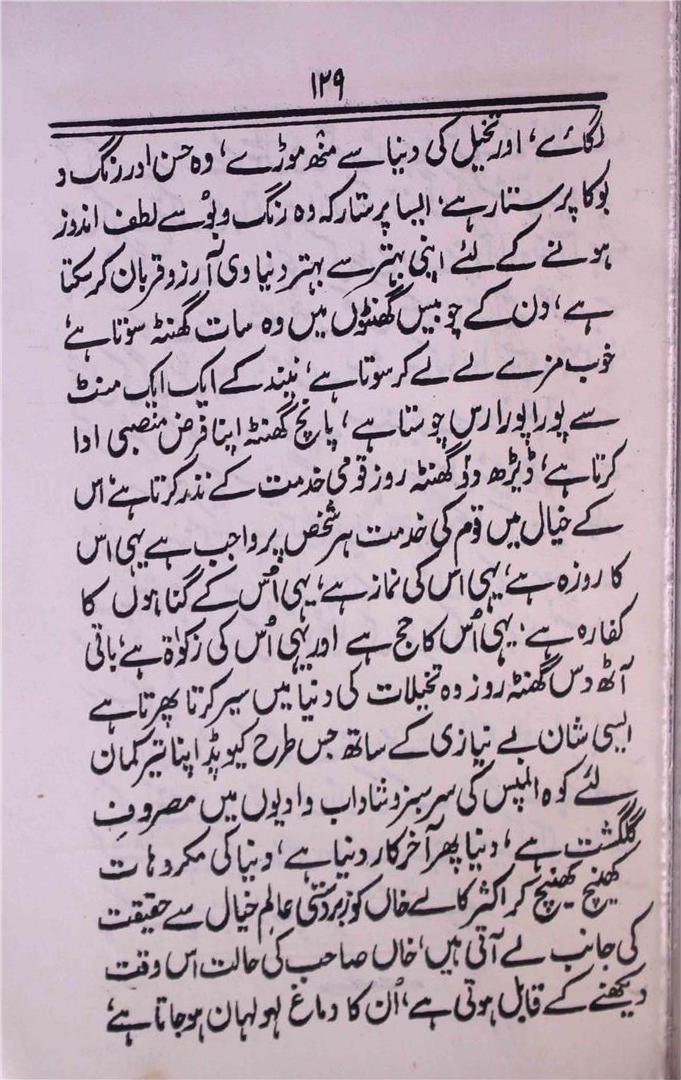 ۱۲۹
لگائے، اور تخیل کی دنیا سے منھ موڑے، وہ حسن اور رنگ و
بو کا پرستار ہے، ایسا پرستار کہ وہ رنگ و بو سے لطف اندوز
ہونے کے لئے اپنی بہتر سے بہتر دنیاوی آرزو قربان کر سکتا
ہے، دن کے چوبیس گھنٹوں میں وہ سات گھنٹہ سوتا ہے
خوب مزے لے لے کر سوتا ہے، نیند کے ایک ایک منٹ
سے پورا پورا رس چوستا ہے، پانچ گھنٹہ اپنا فرض منصبی ادا
کرتا ہے، ڈیڑھ دو گھنٹہ روز قومی خدمت کے نذر کرتا ہے، اس
کے خیال میں قوم کی خدمت ہر شخص پر واجب ہے یہی اس
کا روزہ ہے، یہی اس کی نماز ہے، یہی اُس کے گناہوں کا
کفارہ ہے، یہی اُس کا حج ہے اور یہی اُس کی زکوٰة ہے، باقی
آٹھ دس گھنٹہ روز وہ تخیلات کی دنیا میں سیر کرتا پھرتا ہے
ایسی شان بے نیازی کے ساتھ جس طرح کیوپڈ اپنا تیر کمان
لئے کوہ المپس کی سرسبز و شاداب وادیوں میں مصروفِ
گلگشت ہے، دنیا پھر آخر کار دنیا ہے، دنیا کی مکروہات
کھینچ کھینچ کر اکثر کالے خاں کو زبردستی عالمِ خیال سے حقیقت
کی جانب لے آتی ہیں، خاں صاحب کی حالت اس وقت
دیکھنے کے قابل ہوتی ہے، اُن کا دماغ لہولہان ہو جاتا ہے،